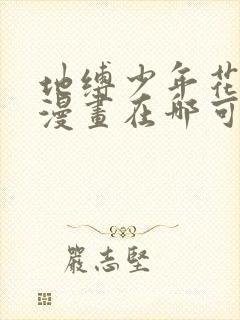 地缚少年花
漫畫在哪可
嚴志堅